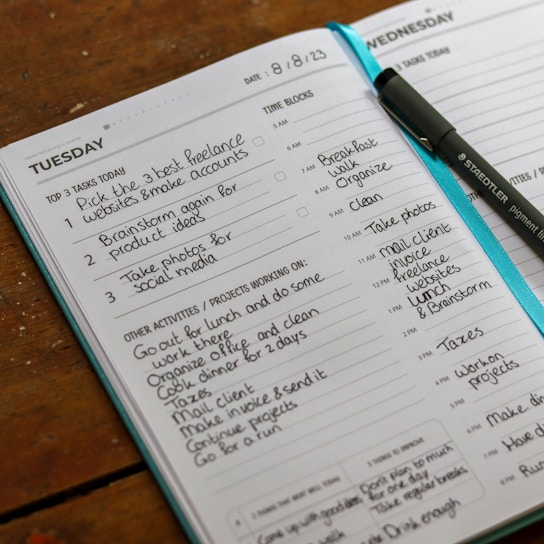 TUESDAY
DATE : 8/8/23
TOP 3 TASKS TODAY
1 Pick the 3 best freelance
websites & make accounts
2 Brainstorm again for
product ideas
3 Take photos for
social media
OTHER ACTIVITIES / PROJECTS WORKING ON:
Go out for lunch and do some
work there
Organize office and clean
Cook dinner for 2 days
Taxes
Mail client
Make invoice & send it
Continue projects
Go for a run
TIME BLOCKS
5 AM
6 AM
7 AM Breakfast
walk
8 AM Organize
9 AM Clean
10 AM Take photos
11 AM mail client
invoice
12 PM freelance
websites
1 PM lunch
& Brainstorm
2 PM
3 PM Taxes
4 PM work on
projects
5 PM
6 PM Make din
7 PM Have di
8 PM Run
2 THINGS THAT WENT WELL TODAY
Came up with good
walk
2 THINGS TO IMPROVE
Don't plan to much
for one day
Take regular breaks
Drink enough
WEDNESDAY
3 TASKS TODAY
STAEDTLER
pigment lin